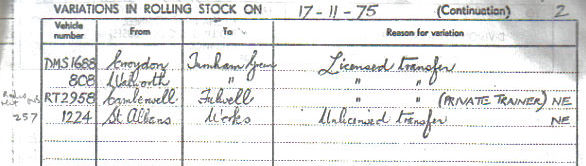 VARIATIONS IN ROLLING STOCK ON 17-11-75 (Continuation) 2
Vehicle number From To Reason for variation
DMS1688 Croydon Turnham Green Licensed transfer
808 Walworth " " "
RT2958 Camberwell Fulwell " " (PRIVATE TRAINER) NE
257 1224 St Albans Works Unlicensed transfer NE